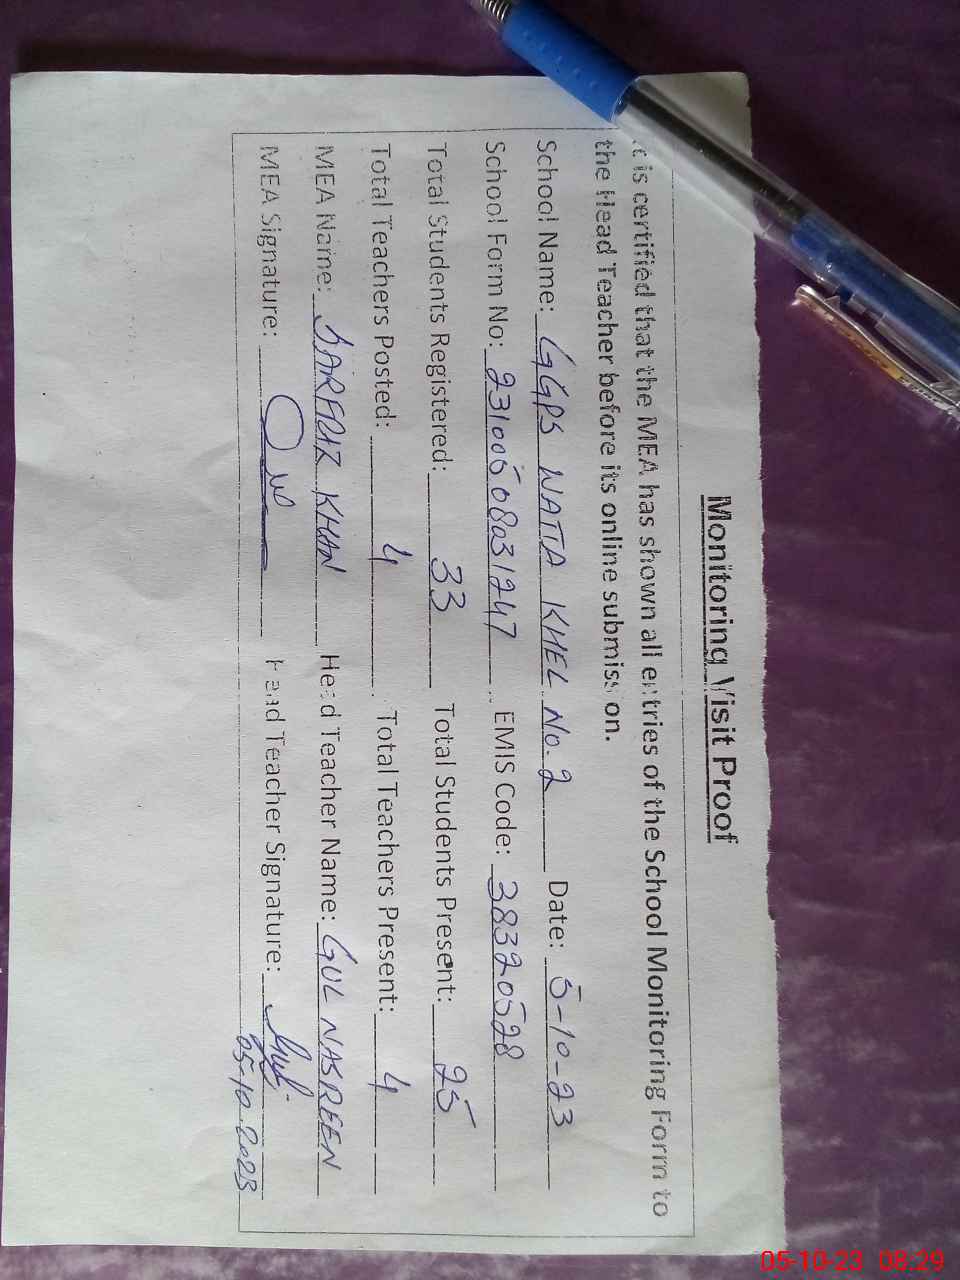 Monitoring Visit Proof
It is certified that the MEA has shown all entries of the School Monitoring Form to
the Head Teacher before its online submission.
School Name: GGPS NATTA KHEL No.2 Date: 5-10-23
School Form No: 23100508031247 EMIS Code: 38320528
Total Students Registered: 33 Total Students Present: 25
Total Teachers Posted: 4 Total Teachers Present: 4
MEA Name: SARFRAZ KHAN Head Teacher Name: GUL NASREEN
MEA Signature: Head Teacher Signature:
05-10-2023
05-10-23 08:29